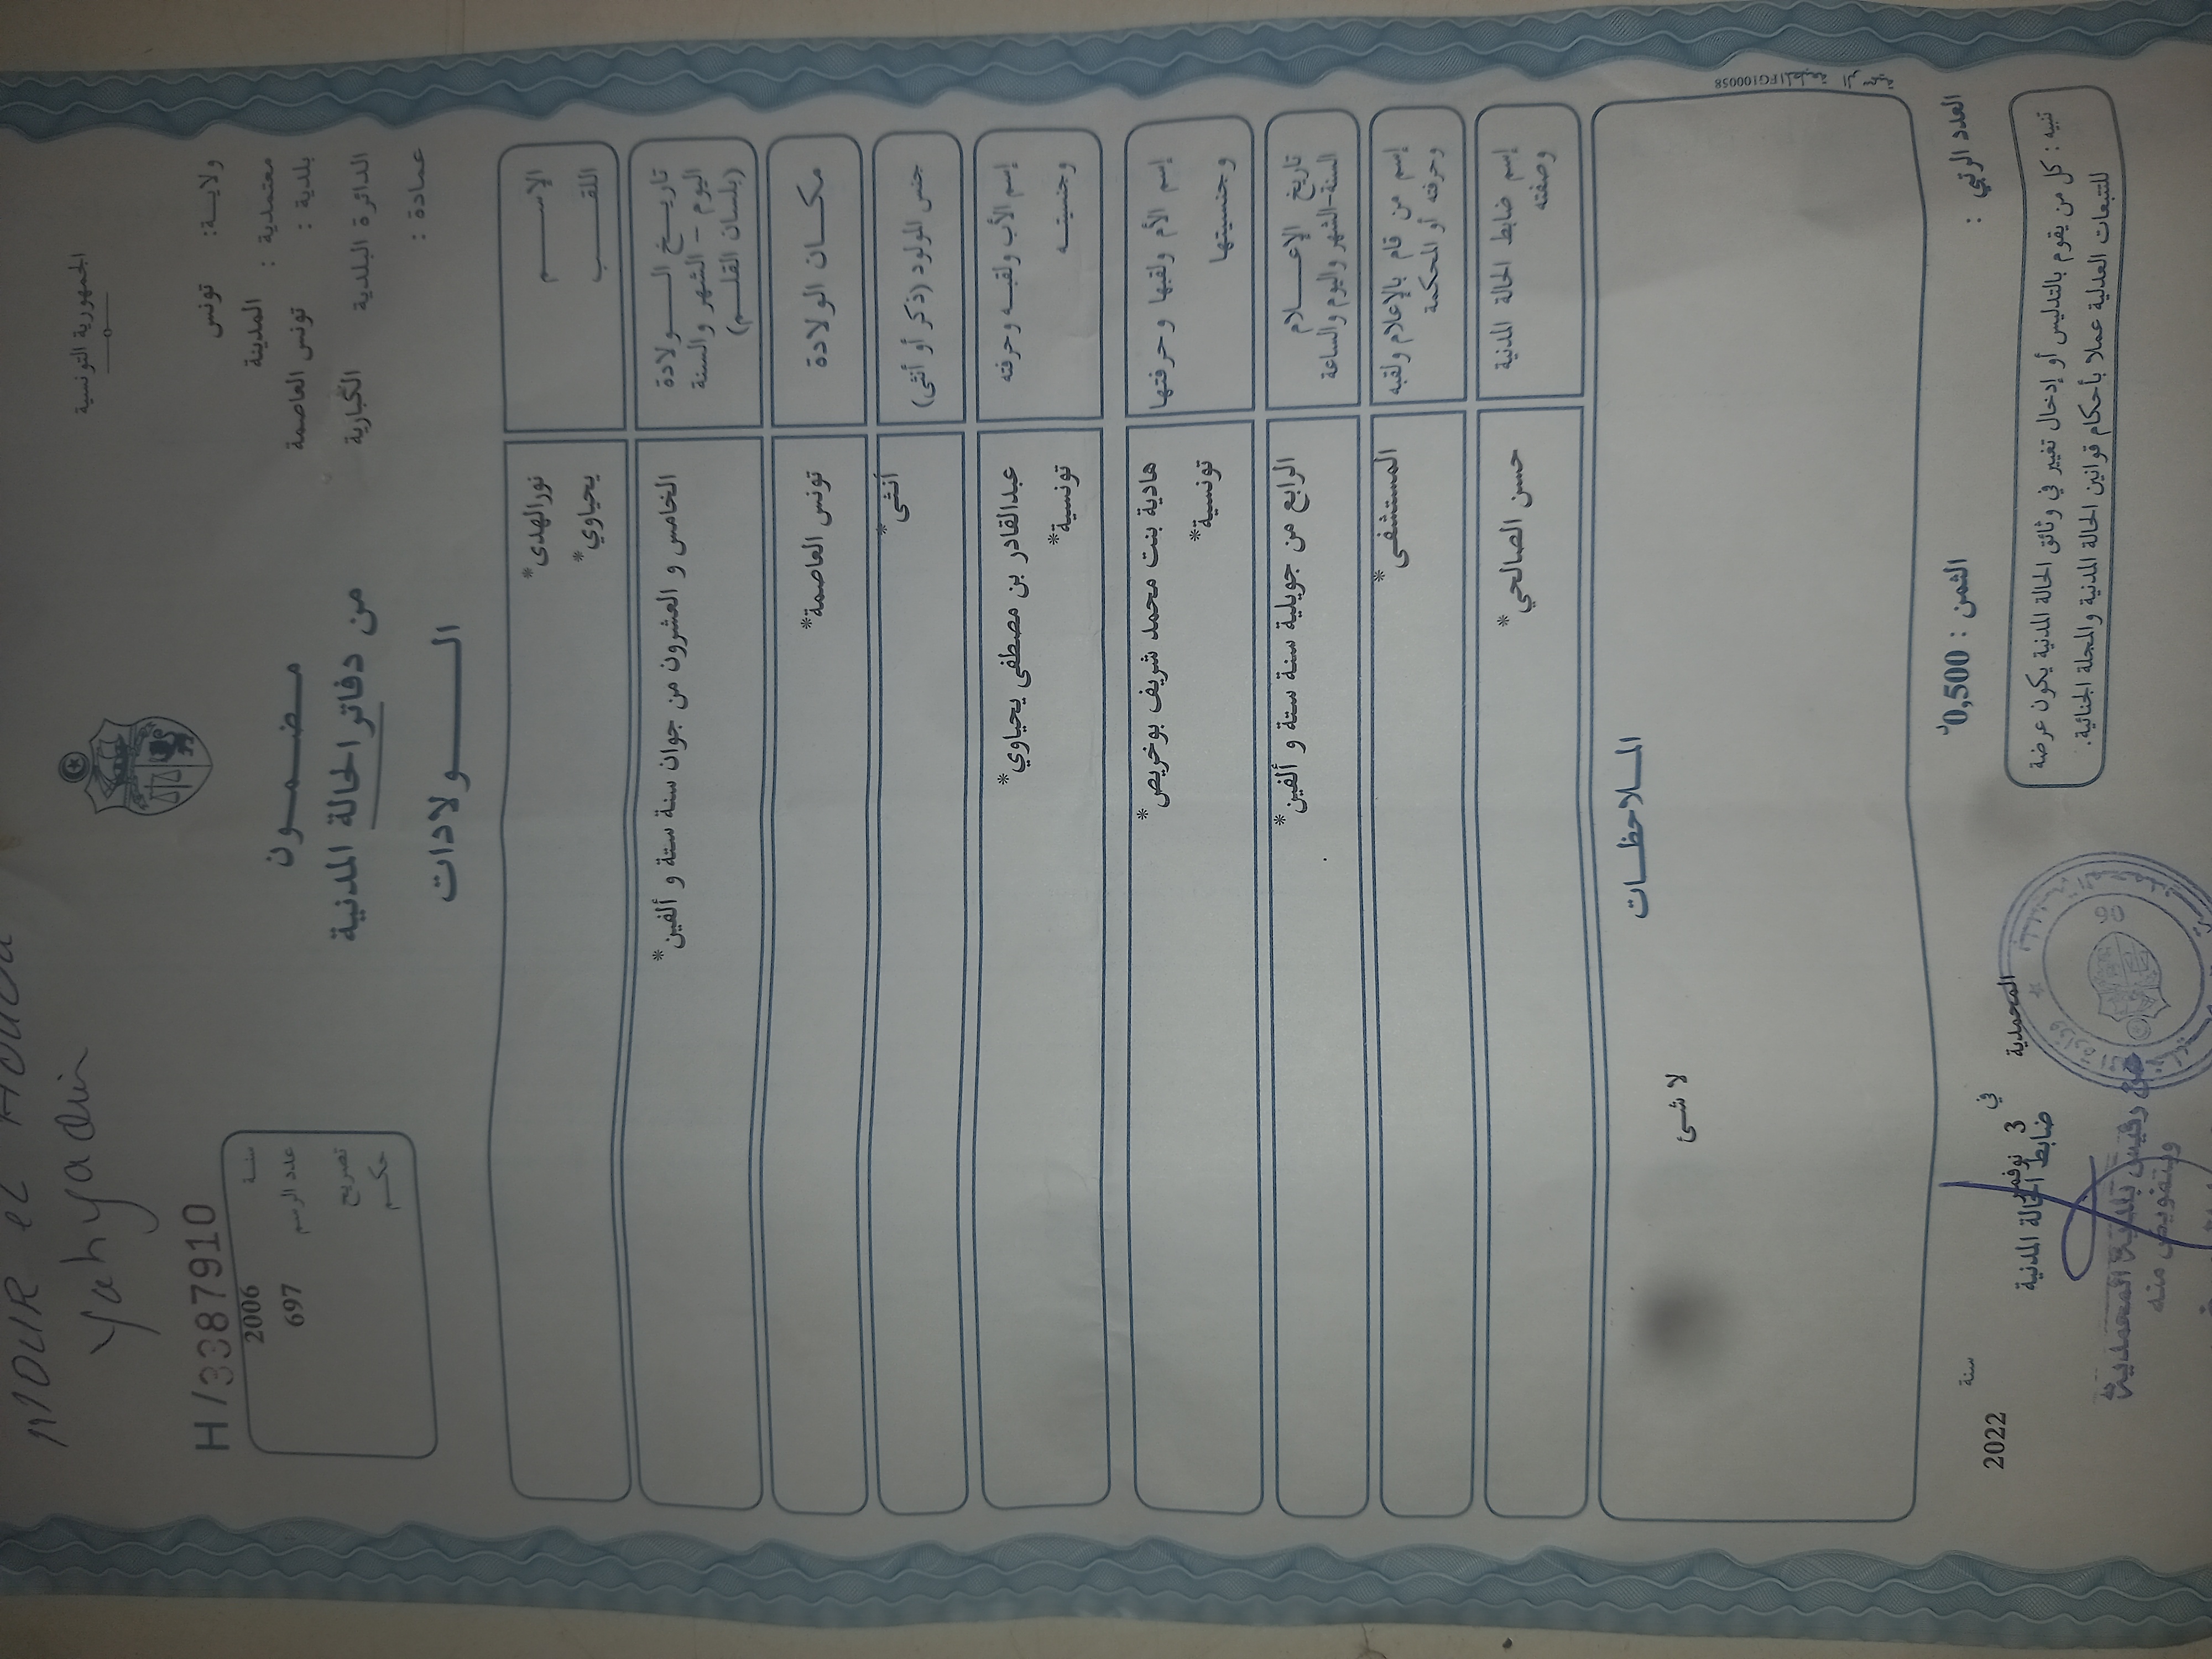 Yahyaoui
الجمهورية التونسية
H/3387910
ولايـة: تونس
معتمدية : المدينة
بلدية : تونس العاصمة
الدائرة البلدية الكبارية
عمادة :
سنـة 2006
عدد الرسم 697
تصريح
حكـم
مـضـمـون
من دفاتر الحالة المدنية
الـولادات
الإسـم نورالهدى*
اللقـب يحياوي*
تاريـخ الـولادة
اليوم - الشهر والسنة
(بلسان القلـم)
الخامس و العشرون من جوان سنة ستة و ألفين*
مكـان الولادة تونس العاصمة*
جنس المولود (ذكر أو أنثى) أنثى*
إسم الأب ولقبـه وحرفته عبدالقادر بن مصطفى يحياوي*
وجنسيتـه تونسية*
إسم الأم ولقبها وحرفتها هادية بنت محمد شريف بوخريص*
وجنسيتها تونسية*
تاريخ الإعـلام
السنة-الشهر واليوم والساعة
الرابع من جويلية سنة ستة و ألفين*
إسم من قام بالإعلام ولقبه
وحرفته أو المحكمة
المستشفى*
إسم ضابط الحالة المدنية
وصفته
حسن الصالحي*
الملاحظـات
لا شئ
العدد الرتبي :
الثمن : 0,500
المحمدية في 3 نوفمبر سنة 2022
ضابط الحالة المدنية
عن رئيس بلدية المحمدية
وبتفويض منه
تنبيه : كل من يقوم بالتدليس أو إدخال تغيير في وثائق الحالة المدنية يكون عرضة
للتتبعات العدلية عملا بأحكام قوانين الحالة المدنية والمجلة الجنائية.